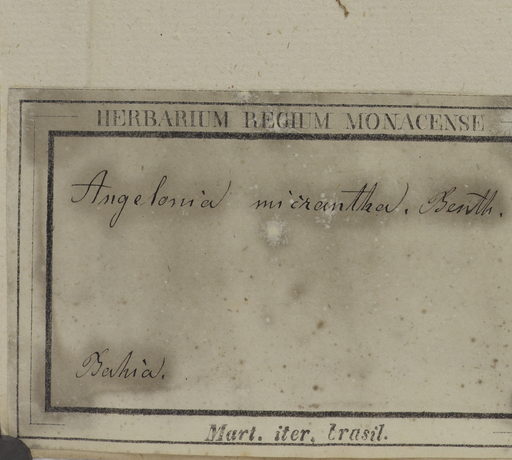 HERBARIUM REGIUM MONACENSE
Angelonia micrantha. Benth.
Bahia.
Mart. iter. brasil.